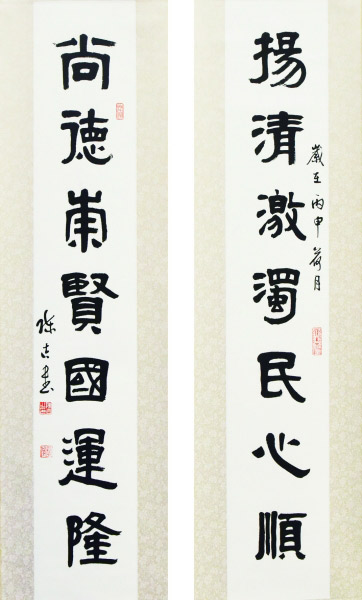 揚清激濁民心順
歲在丙申荷月
尚德崇賢國運隆